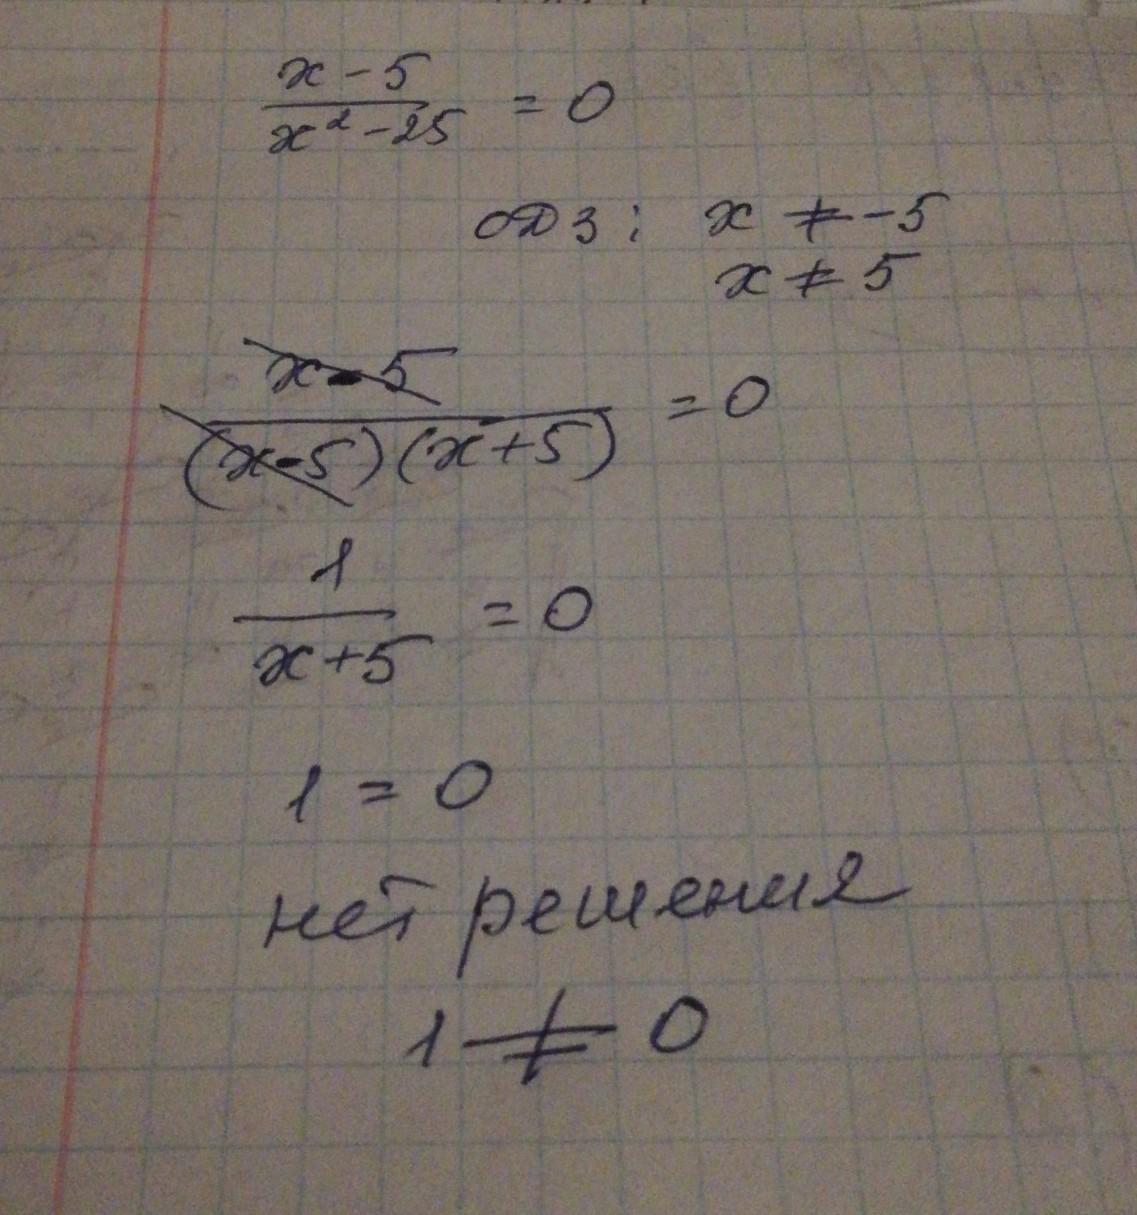 x - 5 / x² - 25 = 0
ОДЗ: x ≠ -5
x ≠ 5
x - 5 / (x - 5)(x + 5) = 0
1 / x + 5 = 0
1 = 0
нет решения
1 ≠ 0